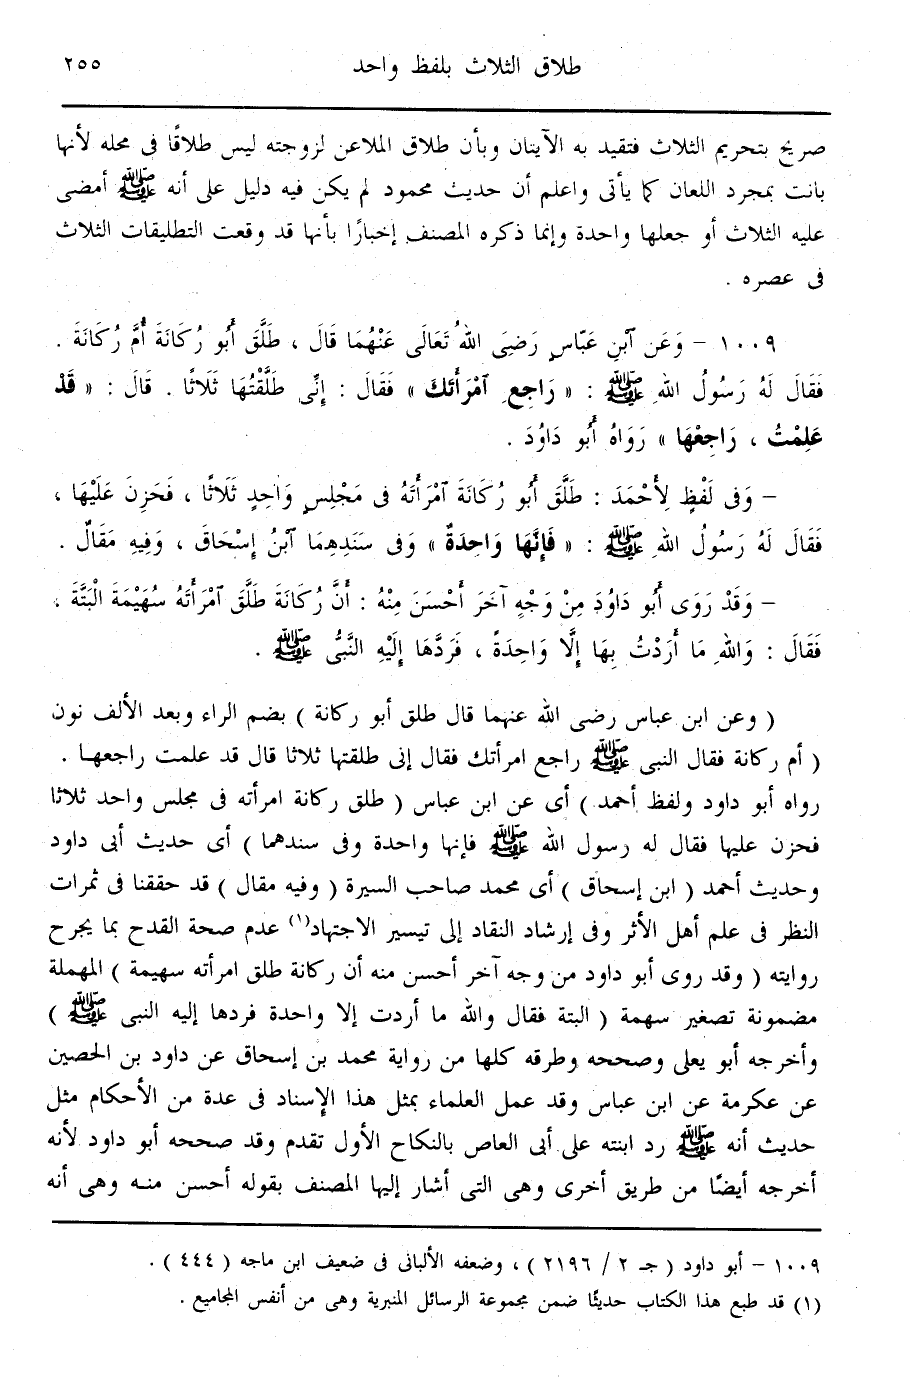 طلاق الثلاث بلفظ واحد ٢٥٥
صريح بتحريم الثلاث فتقيد به الآيتان وبأن طلاق الملاعن لزوجته ليس طلاقًا فى محله لأنها
بانت بمجرد اللعان كما يأتى واعلم أن حديث محمود لم يكن فيه دليل على أنه ﷺ أمضى
عليه الثلاث أو جعلها واحدة وإنما ذكره المصنف إخبارًا بأنها قد وقعت التطليقات الثلاث
فى عصره .
١٠٠٩ – وَعَن ٱبْنِ عَبَّاسٍ رَضِىَ اللهُ تَعَالَى عَنْهُمَا قَالَ ، طَلَّقَ أَبُو رُكَانَةَ أُمَّ رُكَانَةَ .
فَقَالَ لَهُ رَسُولُ اللهِ ﷺ : « رَاجِعِ ٱمْرَأَتَكَ » فَقَالَ : إِنِّى طَلَّقْتُهَا ثَلَاثًا . قَالَ : « قَدْ
عَلِمْتُ ، رَاجِعْهَا » رَوَاهُ أَبُو دَاوُدَ .
– وَفى لَفْظٍ لِأَحْمَدَ : طَلَّقَ أَبُو رُكَانَةَ ٱمْرَأَتَهُ فى مَجْلِسٍ وَاحِدٍ ثَلَاثًا ، فَحَزِنَ عَلَيْهَا ،
فَقَالَ لَهُ رَسُولُ اللهِ ﷺ : « فَإِنَّهَا وَاحِدَةٌ » وَفى سَنَدِهِمَا ٱبْنُ إِسْحَاقَ ، وَفِيهِ مَقَالٌ .
– وَقَدْ رَوَى أَبُو دَاوُدَ مِنْ وَجْهٍ آخَرَ أَحْسَنَ مِنْهُ : أَنَّ رُكَانَةَ طَلَّقَ ٱمْرَأَتَهُ سُهَيْمَةَ الْبَتَّةَ ،
فَقَالَ : وَاللهِ مَا أَرَدْتُ بِهَا إِلَّا وَاحِدَةً ، فَرَدَّهَا إِلَيْهِ النَّبىُّ ﷺ .
( وعن ابن عباس رضى الله عنهما قال طلق أبو ركانة ) بضم الراء وبعد الألف نون
( أم ركانة فقال النبى ﷺ راجع امرأتك فقال إنى طلقتها ثلاثا قال قد علمت راجعها .
رواه أبو داود ولفظ أحمد ) أى عن ابن عباس ( طلق ركانة امرأته فى مجلس واحد ثلاثا
فحزن عليها فقال له رسول الله ﷺ فإنها واحدة وفى سندهما ) أى حديث أبى داود
وحديث أحمد ( ابن إسحاق ) أى محمد صاحب السيرة ( وفيه مقال ) قد حققنا فى ثمرات
النظر فى علم أهل الأثر وفى إرشاد النقاد إلى تيسير الاجتهاد(١) عدم صحة القدح بما يجرح
روايته ( وقد روى أبو داود من وجه آخر أحسن منه أن ركانة طلق امرأته سهيمة ) المهملة
مضمونة تصغير سهمة ( البتة فقال والله ما أردت إلا واحدة فردها إليه النبى ﷺ )
وأخرجه أبو يعلى وصححه وطرقه كلها من رواية محمد بن إسحاق عن داود بن الحصين
عن عكرمة عن ابن عباس وقد عمل العلماء بمثل هذا الإسناد فى عدة من الأحكام مثل
حديث أنه ﷺ رد ابنته على أبى العاص بالنكاح الأول تقدم وقد صححه أبو داود لأنه
أخرجه أيضًا من طريق أخرى وهى التى أشار إليها المصنف بقوله أحسن منه وهى أنه
١٠٠٩ – أبو داود ( جـ ٢ / ٢١٩٦ ) ، وضعفه الألبانى فى ضعيف ابن ماجه ( ٤٤٤ ) .
(١) قد طبع هذا الكتاب حديثًا ضمن مجموعة الرسائل المنيرية وهى من أنفس المجاميع .